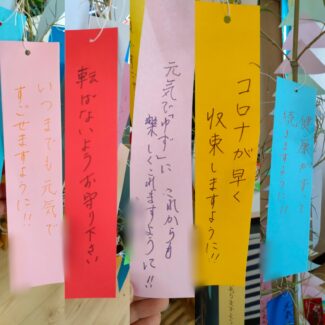 いつまでも元気で
すごせますように!!
転ばないようお守り下さい
元気で「ゆず」に これからも
楽しくこれますようにて!!
コロナが早く
収束しますように!!
健康がずっと
続きますように!!